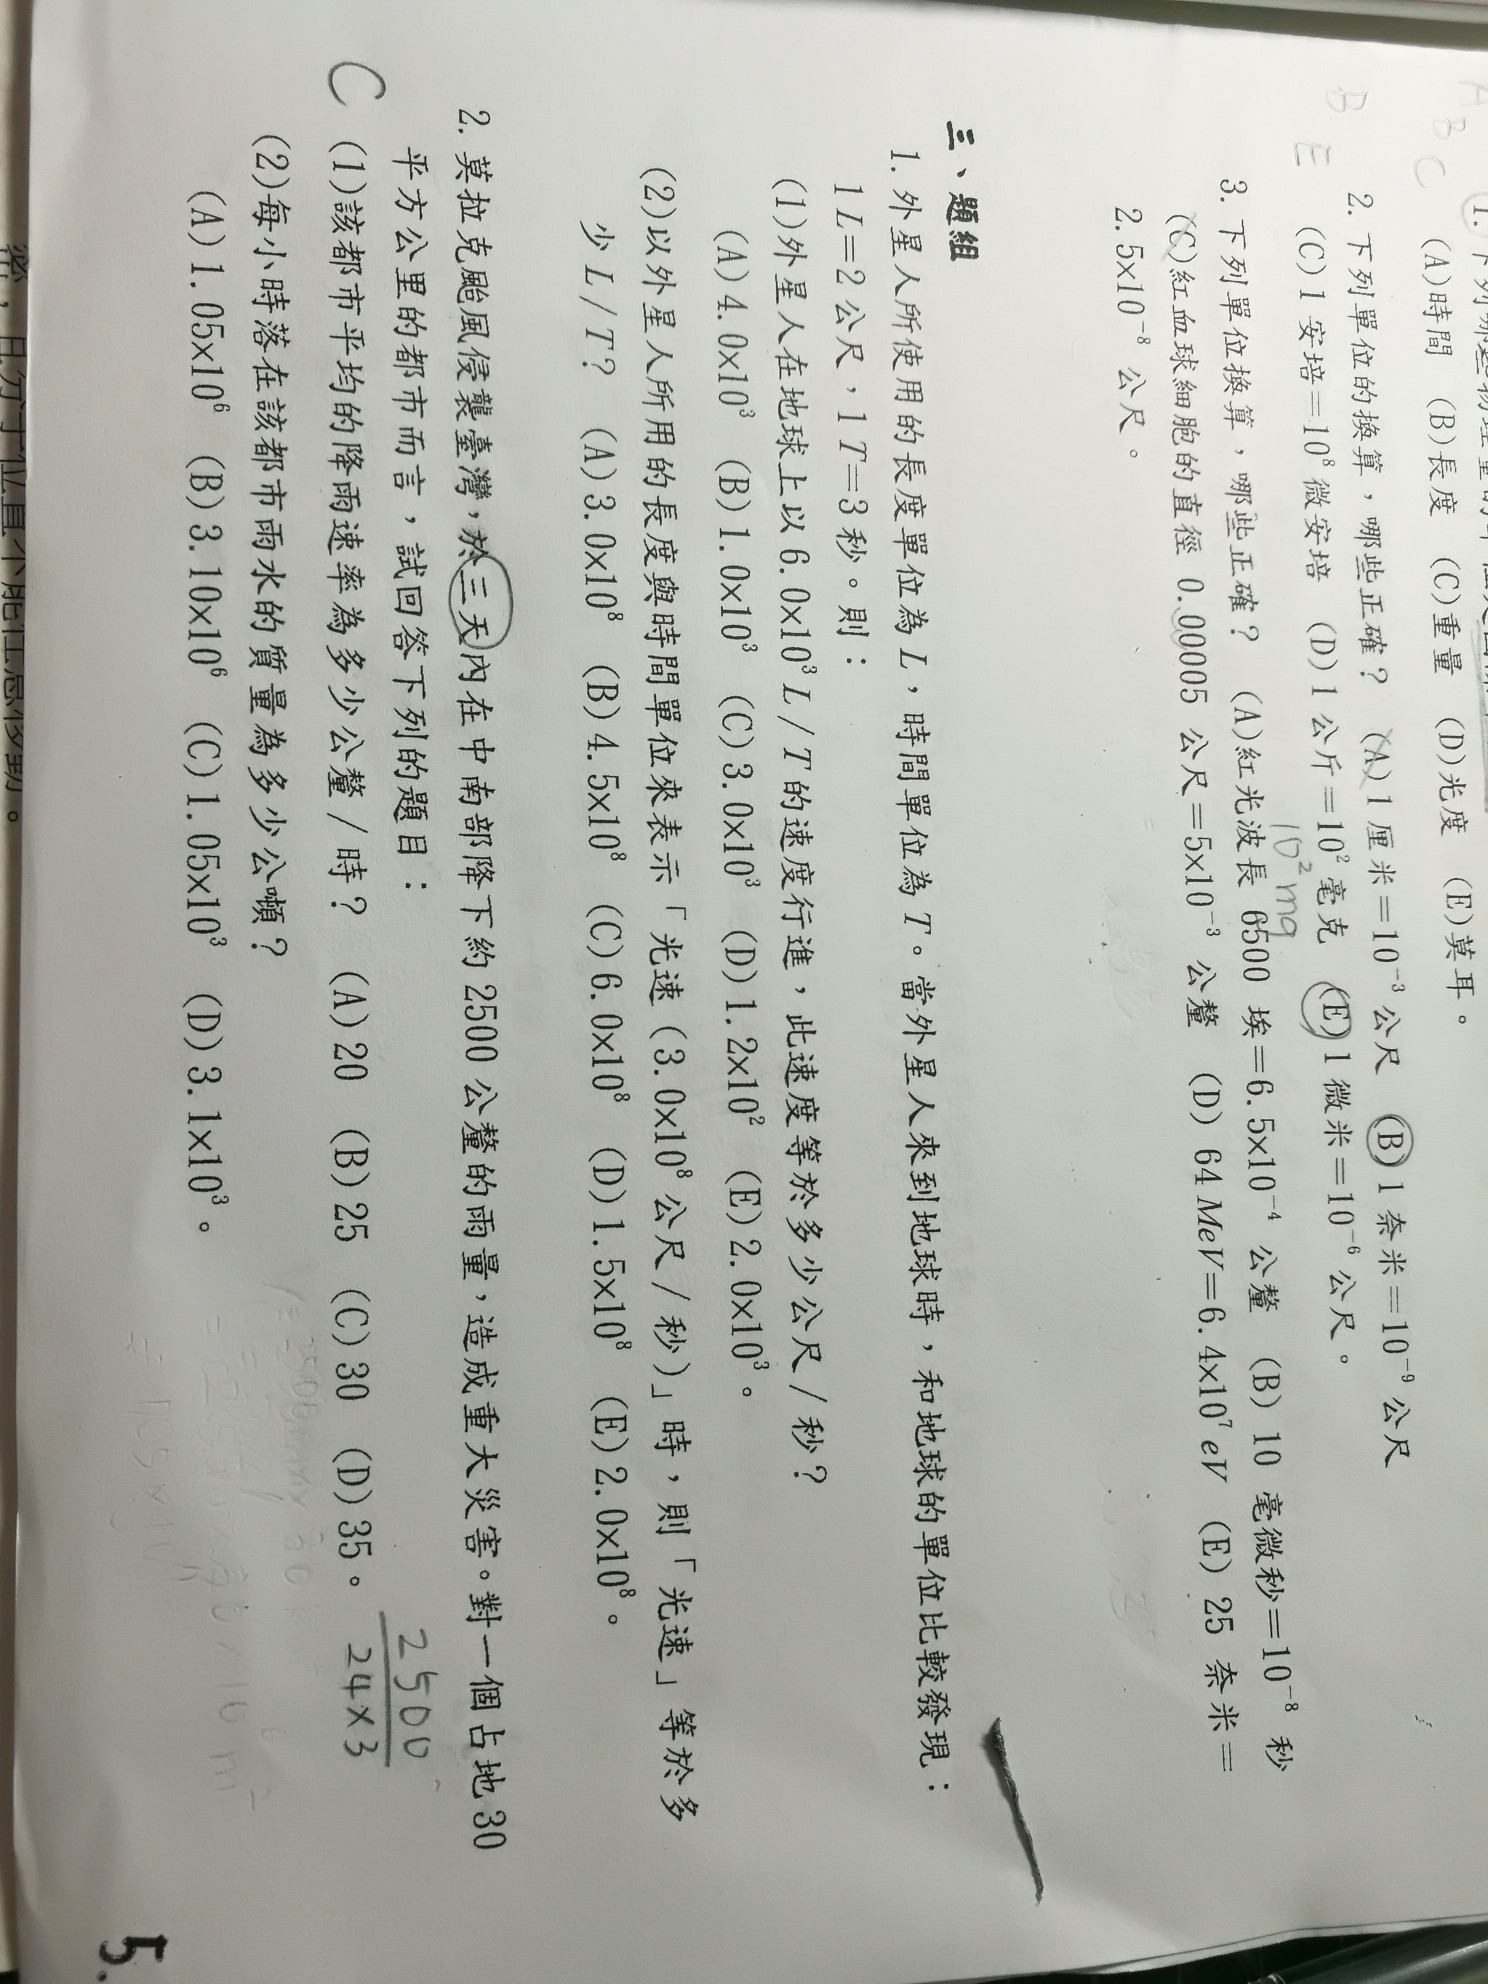 A B C
(A)時間 (B)長度 (C)重量 (D)光度 (E)莫耳。
B E
2. 下列單位的換算，哪些正確？ (A)1厘米＝10⁻³公尺 (B)1奈米＝10⁻⁹公尺
(C)1安培＝10⁸微安培 (D)1公斤＝10²毫克 (E)1微米＝10⁻⁶公尺。
10² mg
3. 下列單位換算，哪些正確？ (A)紅光波長 6500 埃＝6.5x10⁻⁴ 公釐 (B) 10 毫微秒＝10⁻⁸ 秒
(C)紅血球細胞的直徑 0.00005 公尺＝5x10⁻³ 公釐 (D) 64 MeV＝6.4x10⁷ eV (E) 25 奈米＝
2.5x10⁻⁸ 公尺。
三、題組
1. 外星人所使用的長度單位為 L，時間單位為 T。當外星人來到地球時，和地球的單位比較發現：
1 L＝2 公尺，1 T＝3 秒。則：
(1)外星人在地球上以 6.0x10³ L / T 的速度行進，此速度等於多少公尺 / 秒？
(A)4.0x10³ (B)1.0x10³ (C)3.0x10³ (D)1.2x10² (E)2.0x10³。
(2)以外星人所用的長度與時間單位來表示「光速（3.0x10⁸ 公尺 / 秒）」時，則「光速」等於多
少 L / T？ (A)3.0x10⁸ (B)4.5x10⁸ (C)6.0x10⁸ (D)1.5x10⁸ (E)2.0x10⁸。
2. 莫拉克颱風侵襲臺灣，於三天內在中南部降下約 2500 公釐的雨量，造成重大災害。對一個占地 30
平方公里的都市而言，試回答下列的題目：
C
(1)該都市平均的降雨速率為多少公釐 / 時？ (A)20 (B)25 (C)30 (D)35。
2500
24×3
(2)每小時落在該都市雨水的質量為多少公噸？
(A)1.05x10⁶ (B)3.10x10⁶ (C)1.05x10³ (D)3.1x10³。
5.